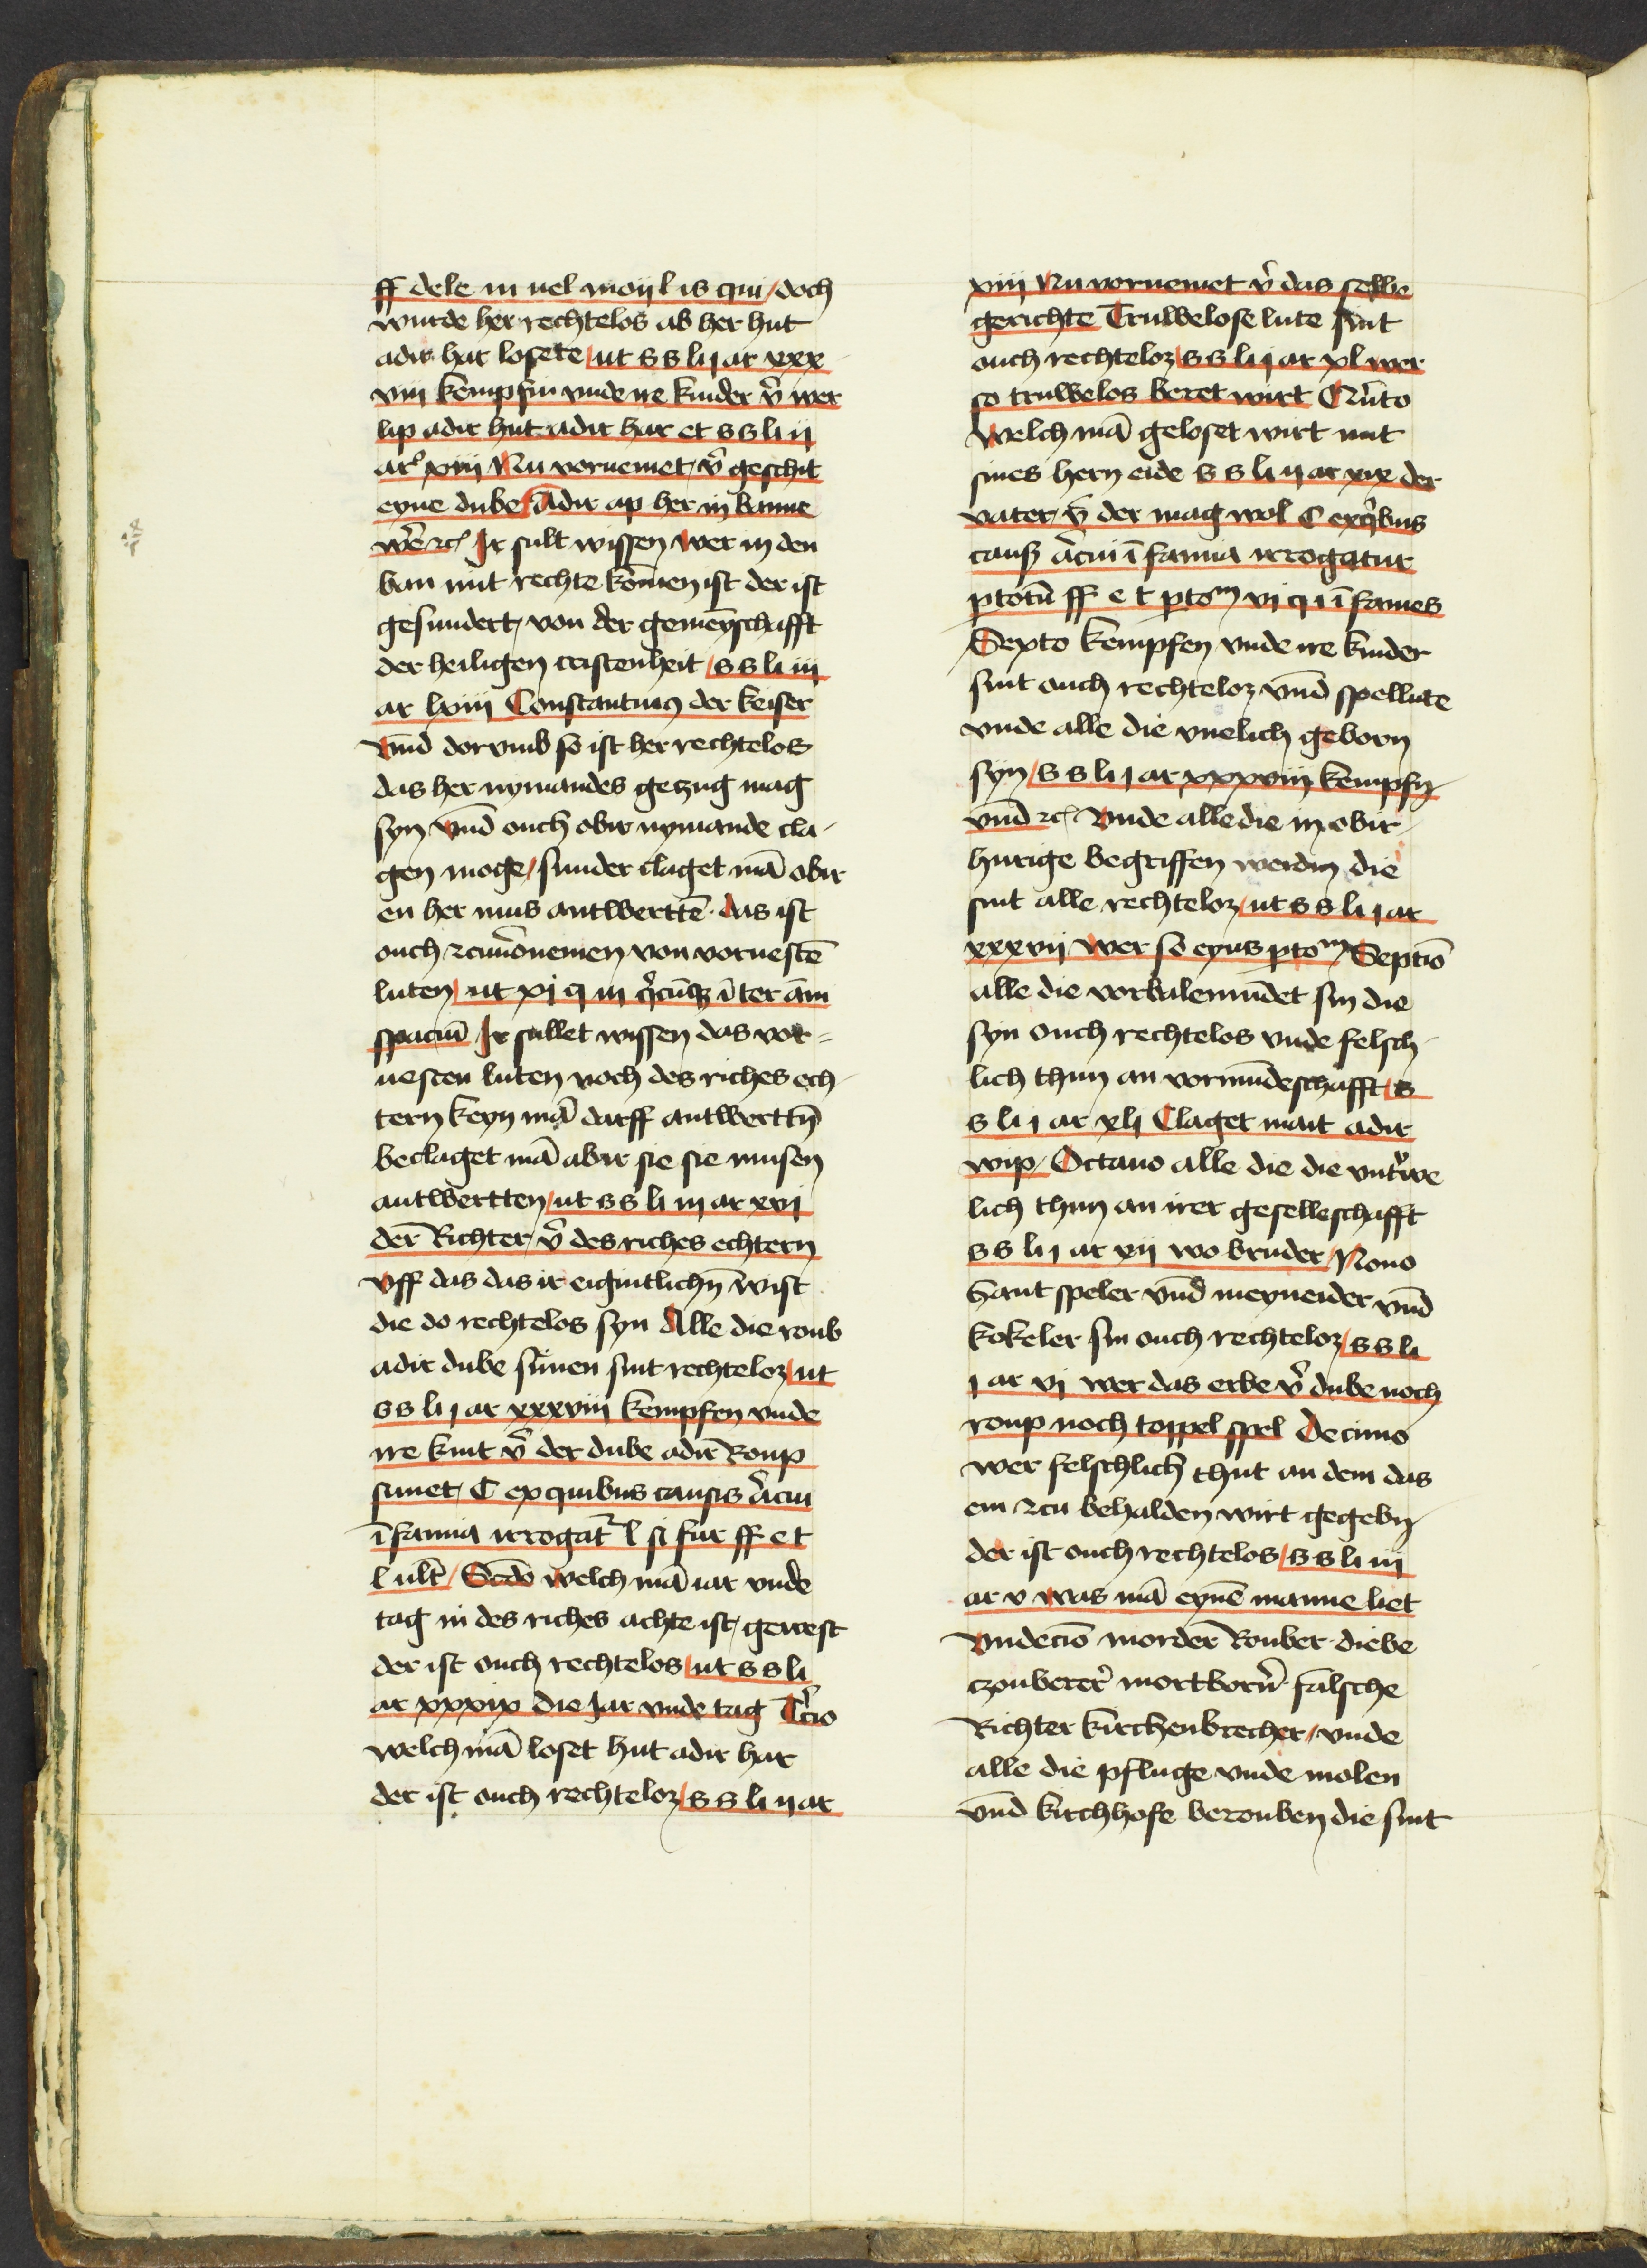 ff dele in uel moij l is qui / doch
wurde her rechtelos ab her hut
adir har losete / ut s s li ij ar xxx
viij kempfin vnde ire kinder v̉ wer
lip adir hut adir har et s s li ij
ar⁹ xiiij Nu vornemet / v̉ geschit
eyne dube / Adir ap her in banne
wẽ rc̃ Ir sult wissen wer in den
ban mit rechte komen ist der ist
gesundert / von der gemeynschafft
der heiligen cristenheit / s s li iij
ar lxiiij Constantinus der keiser
vnd̄ dorvmb so ist her rechtelos
das her nymandes gezug mag
syn vnd̄ ouch obir nymande cla-
gen moge / sunder claget mā obir
en her mus antwerttē · das ist
ouch zcuuornemen von voruestē
luten / ut xj q iij q̉cūqꝫ ī ter ām
spaciū Ir sullet wissen das vor=
uesten luten noch des riches ech-
tern keyn mā darff antwerttn̄
beclaget mā abir sie sie musen
antwertten / ut s s li iij ar xvi
der Richter / v̉ des riches echtern
vff das das ir eigintlichn̄ wist
die do rechtelos syn Alle die roub
adir dube sunen sint rechteloz / ut
s s li j ar xxxviij kempfen vnde
ire kint v̉ der dube adir Roup
sunet / C ex quibus causis ācui
īfamia irrogat̉ l si fur ff e t
l ult̄ / Scdo welch mā iar vnde
tag in des riches achte ist / gewest
der ist ouch rechtelos / ut s s li
ar xxxix die Jar vnde tag Tc̉io
welch mā loset hut adir har
der ist ouch rechteloz / s s li ij ar
xiiij Nu vornemet v̉ das selbe
gerichte Truwelose lute sint
ouch rechteloz / s s li j ar xl wer
so truwelos beret wirt Qu̅to
Welch mā geloset wirt mit
sines hern eide s s li ij ar xix der
vater / v̉ der mag wol C ex q̉bus
causꝭ ācui ī famia irrogatur
p totū ff e t p toᵐ vj q i īfames
Sexto kempfen vnde ire kinder
sint ouch rechteloz vnd̄ spellute
vnde alle die vnelich geborn
syn / s s li j ar xxxviij kempfn̄
vnd̄ rc̃ Vnde alle die in obir-
hurige begriffen werdin die
sint alle rechteloz / ut s s li j ar
xxxvij wer so eyns p toᵐ / Septīo
alle die vorbalemūdet sin die
syn ouch rechtelos vnde felsch-
lich thun an vormūdeschafft / s
s li j ar xlj Claget mait adir
wip / Octauo alle die die vntr̉we
lich thun an irer geselleschafft
s s li j ar xij wo bruder / Nono
Hant speler vnd̄ meyneider vnd̄
kokeler sin ouch rechteloz / s s li
j ar vj wer das erbe v̉ dube noch
roup noch toppel spel Decimo
wer felschlich thut an dem das
em zcu behalden wirt gegebn̄
der ist ouch rechtelos / s s li iij
ar v was mā eynē manne liet
Vndecīo morder Rouber · diebe
czouberer̉ mortborn̄ falsche
Richter kirchenbrecher / vnde
alle die pfluge vnde molen
vnd̄ kirchhofe berouben die sint